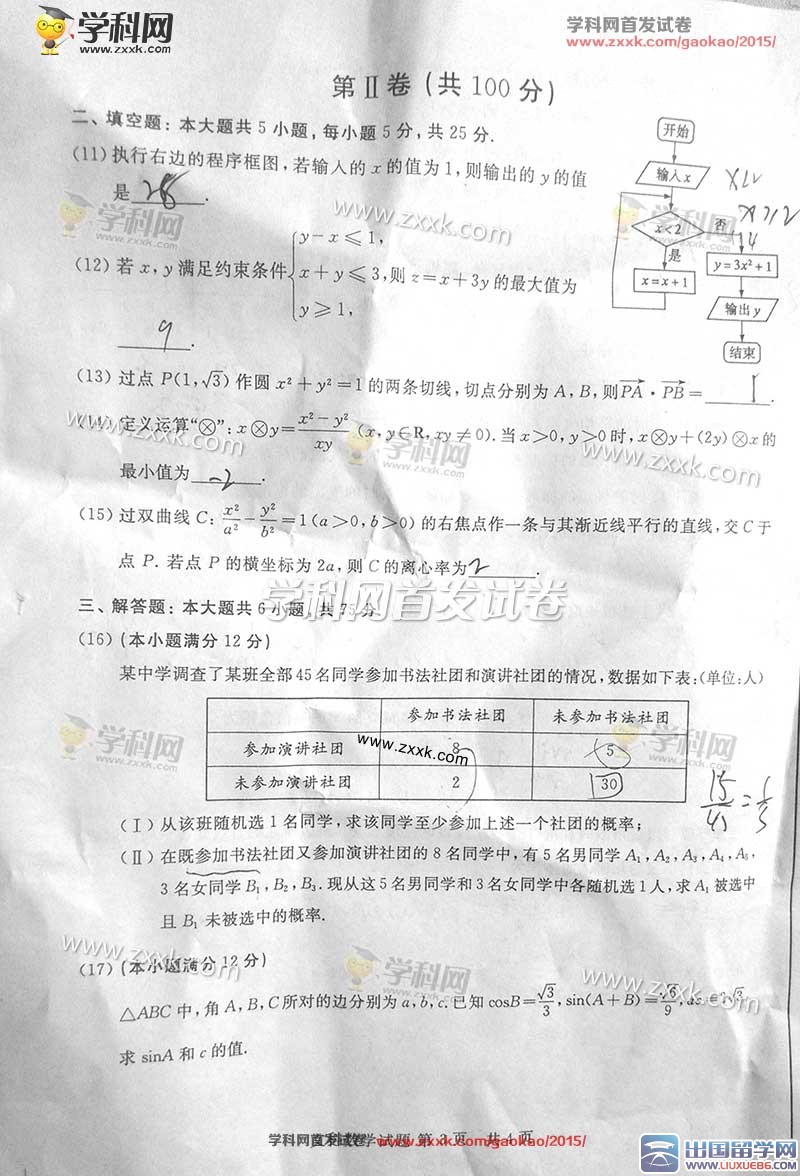 学科网
www.zxxk.com
学科网首发试卷
www.zxxk.com/gaokao/2015/
第Ⅱ卷(共100分)
二、填空题:本大题共5小题,每小题5分,共25分.
(11)执行右边的程序框图,若输入的x的值为1,则输出的y的值
是 .
开始
输入x
x<2
否
是
x=x+1
y=3x²+1
输出y
结束
学科网
www.zxxk.com
(12)若x,y满足约束条件
y-x≤1,
x+y≤3,
y≥1,
则z=x+3y的最大值为
9 .
(13)过点P(1,√3)作圆x²+y²=1的两条切线,切点分别为A,B,则PA·PB= .
www.zxxk.com
学科网
www.zxxk.com
定义运算“⊗”:x⊗y=(x²-y²)/xy (x,y∈R,xy≠0).当x>0,y>0时,x⊗y+(2y)⊗x的
最小值为 .
(15)过双曲线C:x²/a²-y²/b²=1(a>0,b>0)的右焦点作一条与其渐近线平行的直线,交C于
点P.若点P的横坐标为2a,则C的离心率为 2 .
学科网首发试卷
三、解答题:本大题共6小题,共75分
(16)(本小题满分12分)
某中学调查了某班全部45名同学参加书法社团和演讲社团的情况,数据如下表:(单位:人)
参加书法社团 未参加书法社团
参加演讲社团 8 5
未参加演讲社团 2 30
www.zxxk.com
学科网
www.zxxk.com
学科网
www.zxxk.com
15/45=1/3
(Ⅰ)从该班随机选1名同学,求该同学至少参加上述一个社团的概率;
(Ⅱ)在既参加书法社团又参加演讲社团的8名同学中,有5名男同学A₁,A₂,A₃,A₄,A₅,
3名女同学B₁,B₂,B₃.现从这5名男同学和3名女同学中各随机选1人,求A₁被选中
且B₁未被选中的概率.
www.zxxk.com
学科网
www.zxxk.com
www.zxxk.com
(17)(本小题满分12分)
△ABC中,角A,B,C所对的边分别为a,b,c.已知cosB=√3/3,sin(A+B)=√6/9,
求sinA和c的值.
学科网首发试卷
www.zxxk.com/gaokao/2015/
试题 第3页 共4页
出国留学网
www.liuxue86.com